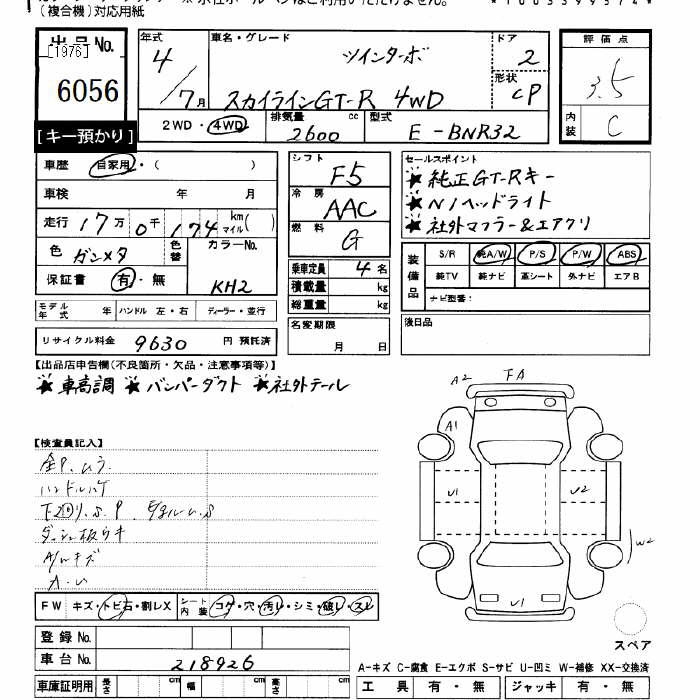 (複合機)対応用紙
出品No.
[1976]
6056
【キー預かり】
年式
4/7月
車名・グレード
ツインターボ
スカイラインGT-R 4WD
ドア
2
形状
CP
2WD・4WD
排気量
2600 cc
型式
E-BNR32
評価点
3.5
内装
C
車歴 自家用・( )
車検 年 月
走行 17万0千174 km マイル ( )
色 ガンメタ 色替 カラーNo. KH2
保証書 有・無
モデル年式 年 ハンドル 左・右 ディーラー・並行
リサイクル料金 9630 円 預託済
シフト F5
冷房 AAC
燃料 G
乗車定員 4名
積載量 kg
総重量 kg
名変期限
月 日
セールスポイント
★純正GT-Rキー
★N1ヘッドライト
★社外マフラー&エアクリ
装備品
S/R 純A/W P/S P/W ABS
純TV 純ナビ 革シート 外ナビ エアB
ナビ型番:
後日品
【出品店申告欄(不良箇所・欠品・注意事項等)】
★車高調 ★バンパーダクト ★社外テール
【検査員記入】
ハンドルハゲ
ダッシュ板ウキ
A/Wキズ
FW キズ・トビ石・割レX シート内装 コゲ・穴・汚レ・シミ・破レ・スレ
登録No.
車台No. 218926
車庫証明用 長さ cm 幅 cm 高さ cm
A2 FA
A1
U1 U2
W2
U1
スペア
A-キズ C-腐食 E-エクボ S-サビ U-凹ミ W-補修 XX-交換済
工具 有・無 ジャッキ 有・無